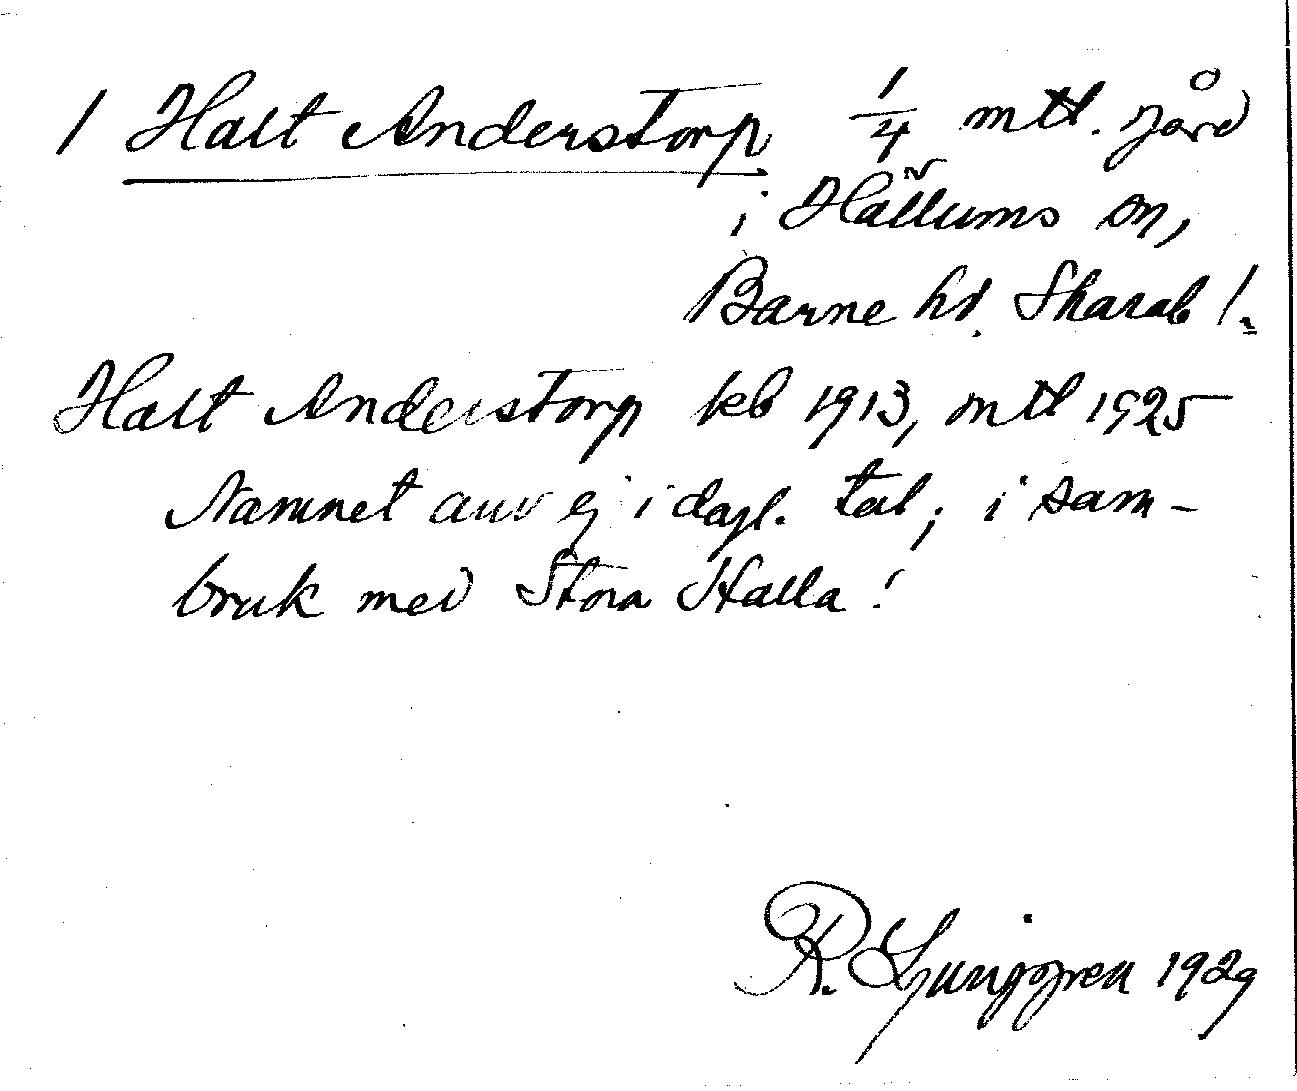 1 Halt Anderstorp 1/4 mtl. gård
i Hällums sn,
Barne hd. Skarab l.
Halt Anderstorp kb 1913, mtl 1925
Namnet anv ej i dagl. tal; i sam-
bruk med Stora Halla!
R. Ljunggren 1929